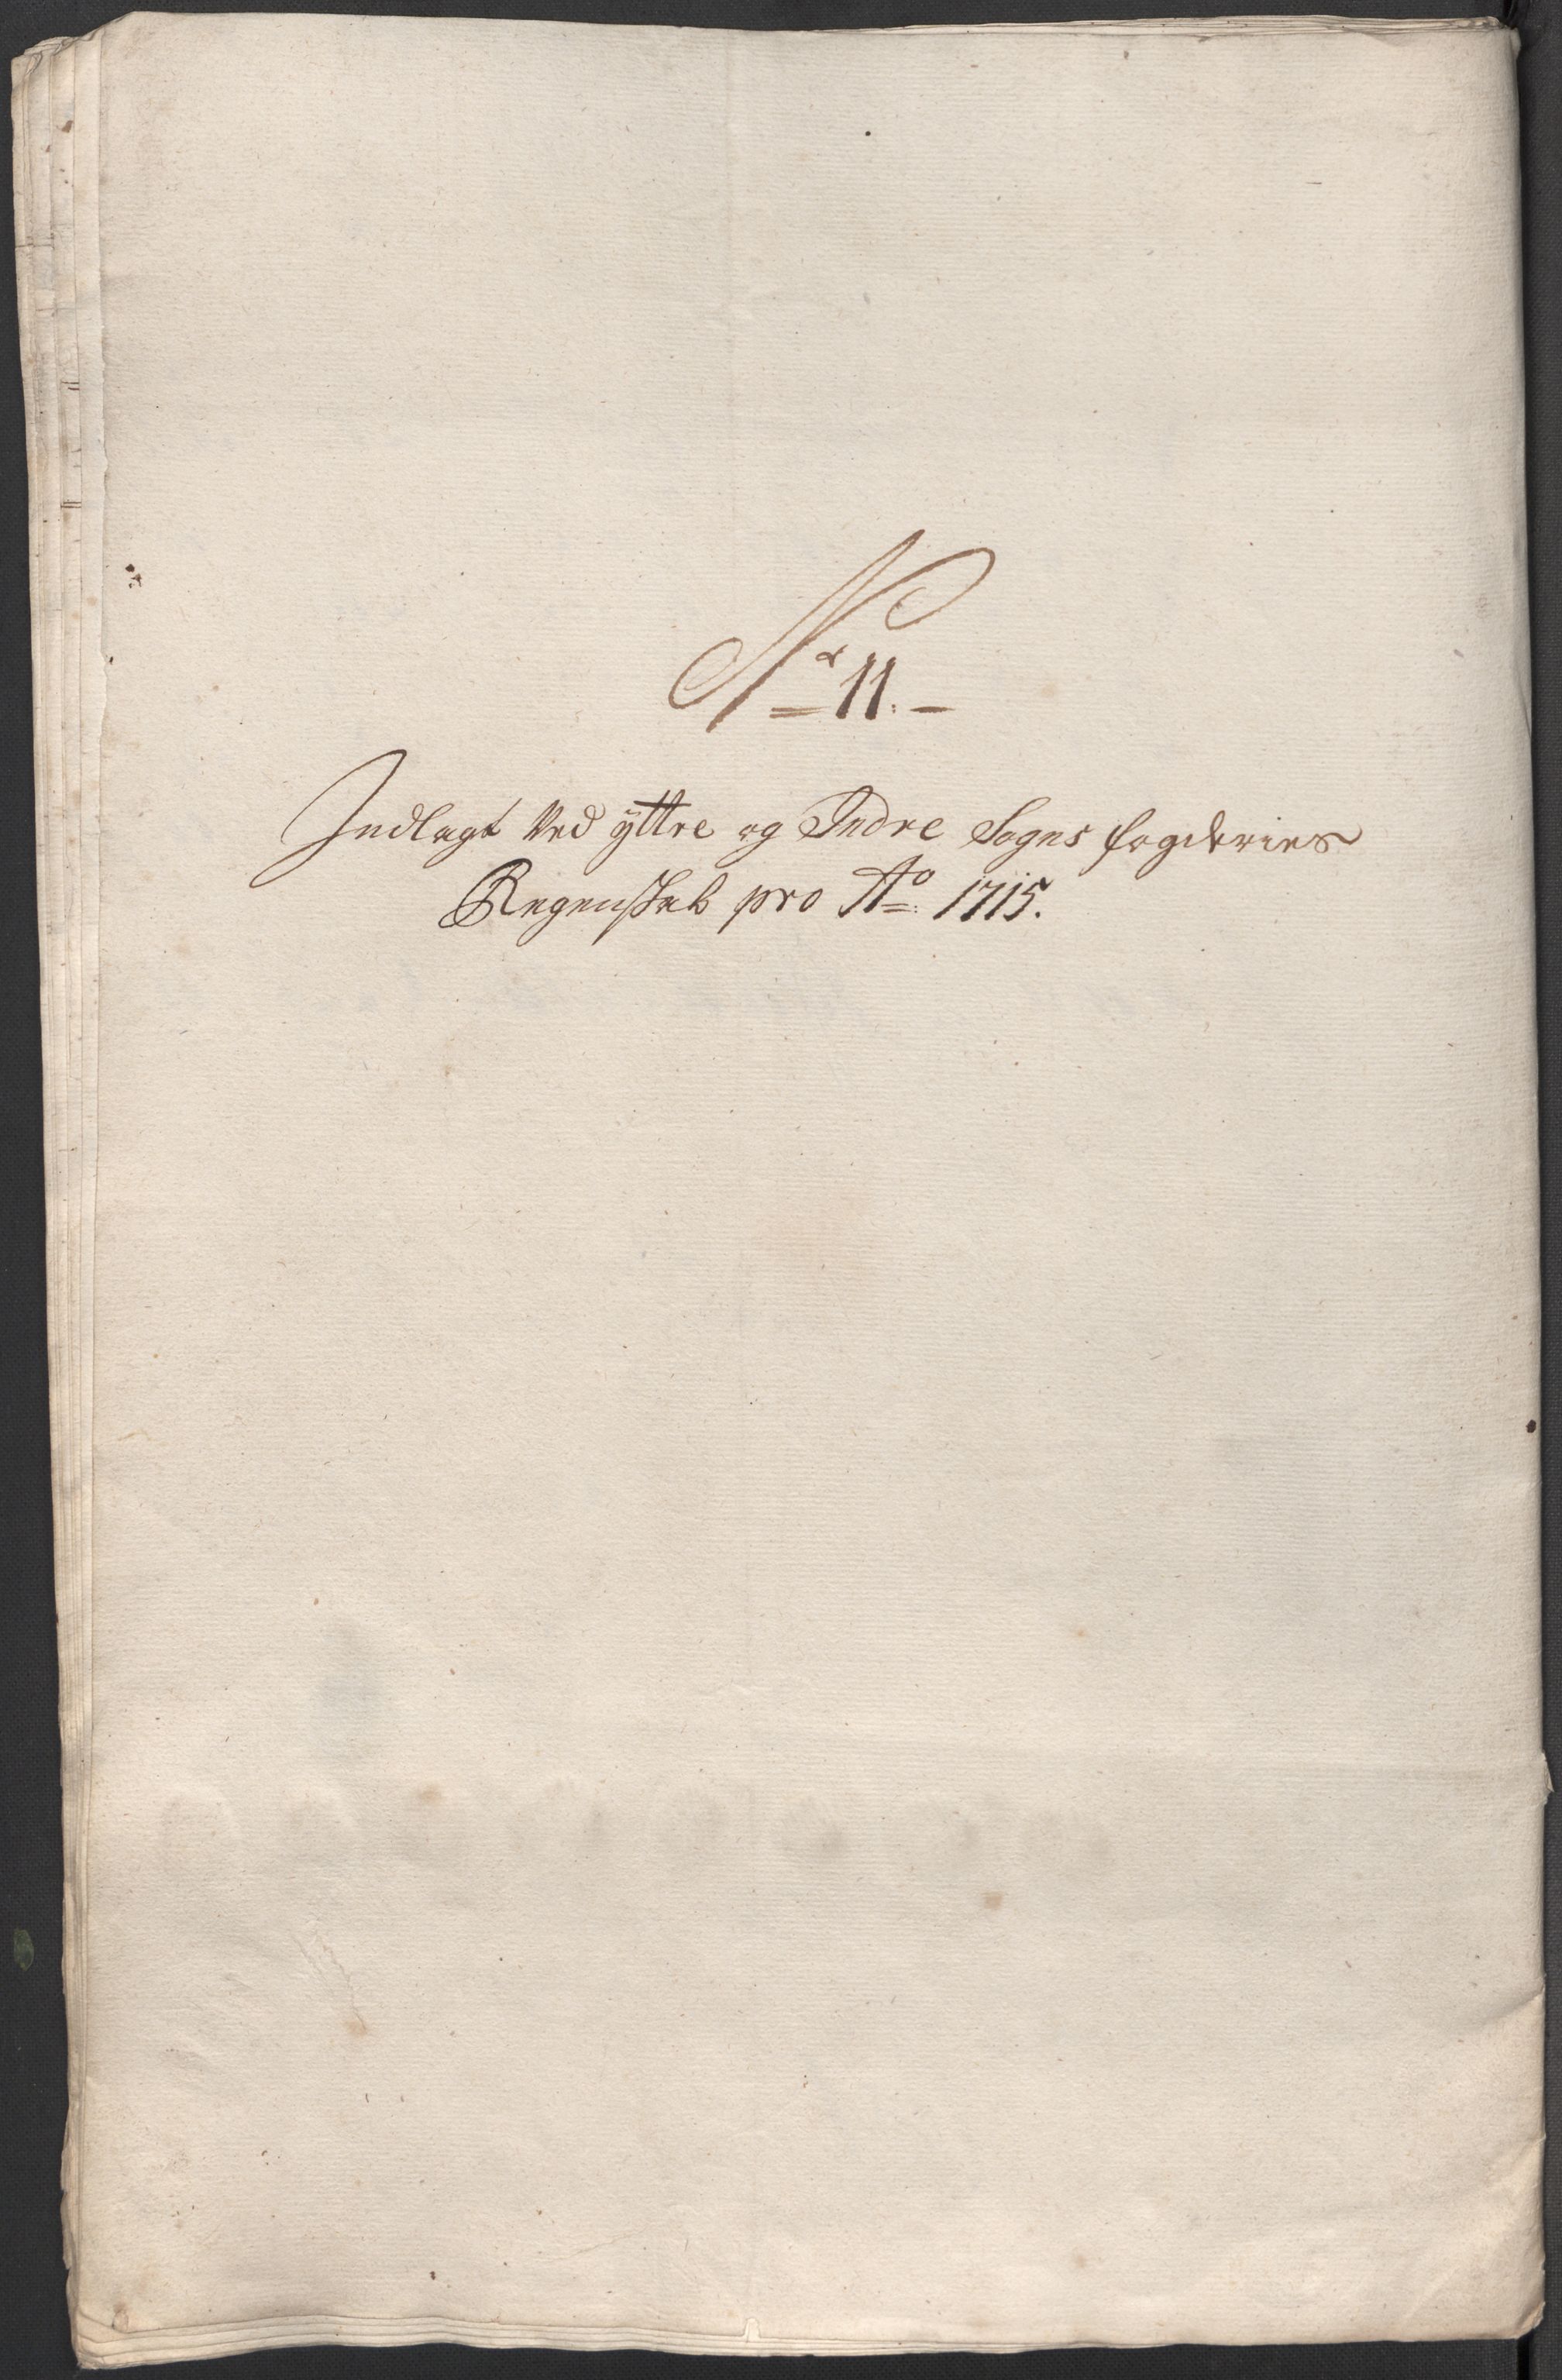 No 11.
Indlagt Ved ÿttre og Indre Sogns fogderies
Regenskab pro Ao: 1715.